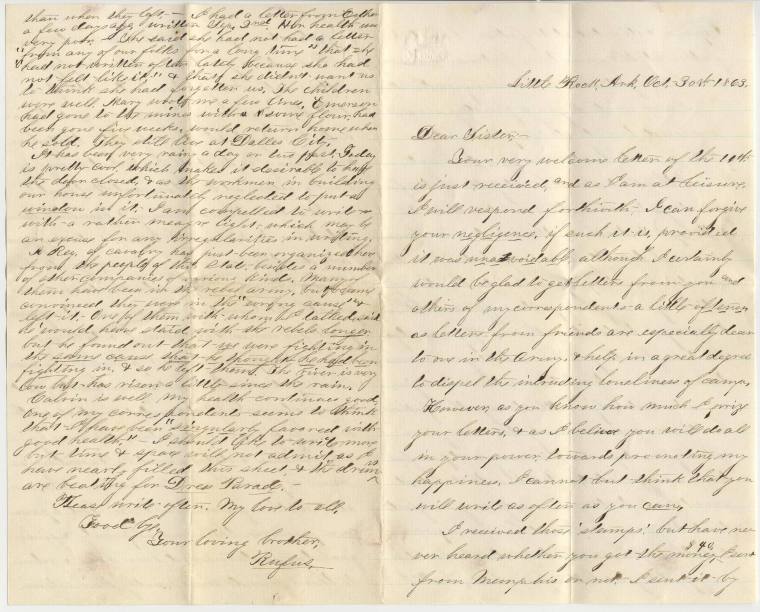 Little Rock, Ark, Oct. 30th 1863.
Dear Sister,—
Your very welcome letter of the 10th
is just received, and as I am at leisure,
I will respond forthwith,— I can forgive
your negligence, if such it is, provided
it was unavoidable, although I certainly
would be glad to get letters from you and
others of my correspondents a little oftener
as letters from friends are especially dear
to one in the Army, & help in a great degree
to dispel the intruding loneliness of camp,
However, as you know how much I prize
your letters, & as I believe you will do all
in your power, towards promoting my
happiness, I cannot but think that you
will write as often as you can,
I received those 'stamps', but have ne-
ver heard whether you got the money, $40, I sent
from Memphis or not.— I sent it by
than when they left.— I had a letter from
a few days ago, written Sep. 3rd. Her health was
very poor. She said she had not had a letter
"from any of our folks for a long time" that she
had not written often lately because she had
not felt like it," & that she didn't want us
to think she had forgotten us. The children
were well. Mary wrote me a few lines. Emerson
had gone to the mines with some flour, had
been gone five weeks, would return home when
he sold. They still live at Dalles City.
It has been very rainy a day or two past. Today
is pretty cool, which makes it desirable to have
the door closed, & as the workmen in building
our house unfortunately neglected to put a
window in it, I am compelled to write
with a rather meagre light, which may be
an excuse for any irregularities in writing.
A Reg. of cavalry has just been organized here
from the people of that State, besides a number
of other companies of various kinds. Many of
them have been in the rebel army, but became
convinced they were in the "wrong cause" &
left it. One of them with whom I talked said
he would have staid with the rebels longer
but he found out that we were fighting in
the same cause that he thought he had been
fighting in, & so he left them. The river is very
low but has risen a little since the rain.
Calvin is well, my health continues good,
one of my correspondents seems to think
that I have been "singularly favored with
good health,"— I should like to write more
but time & space will not admit as I
have nearly filled this sheet, & the drums
are beating for Dress Parade.—
Please write often. My love to all.
Good bye.
Your loving brother,
Rufus.